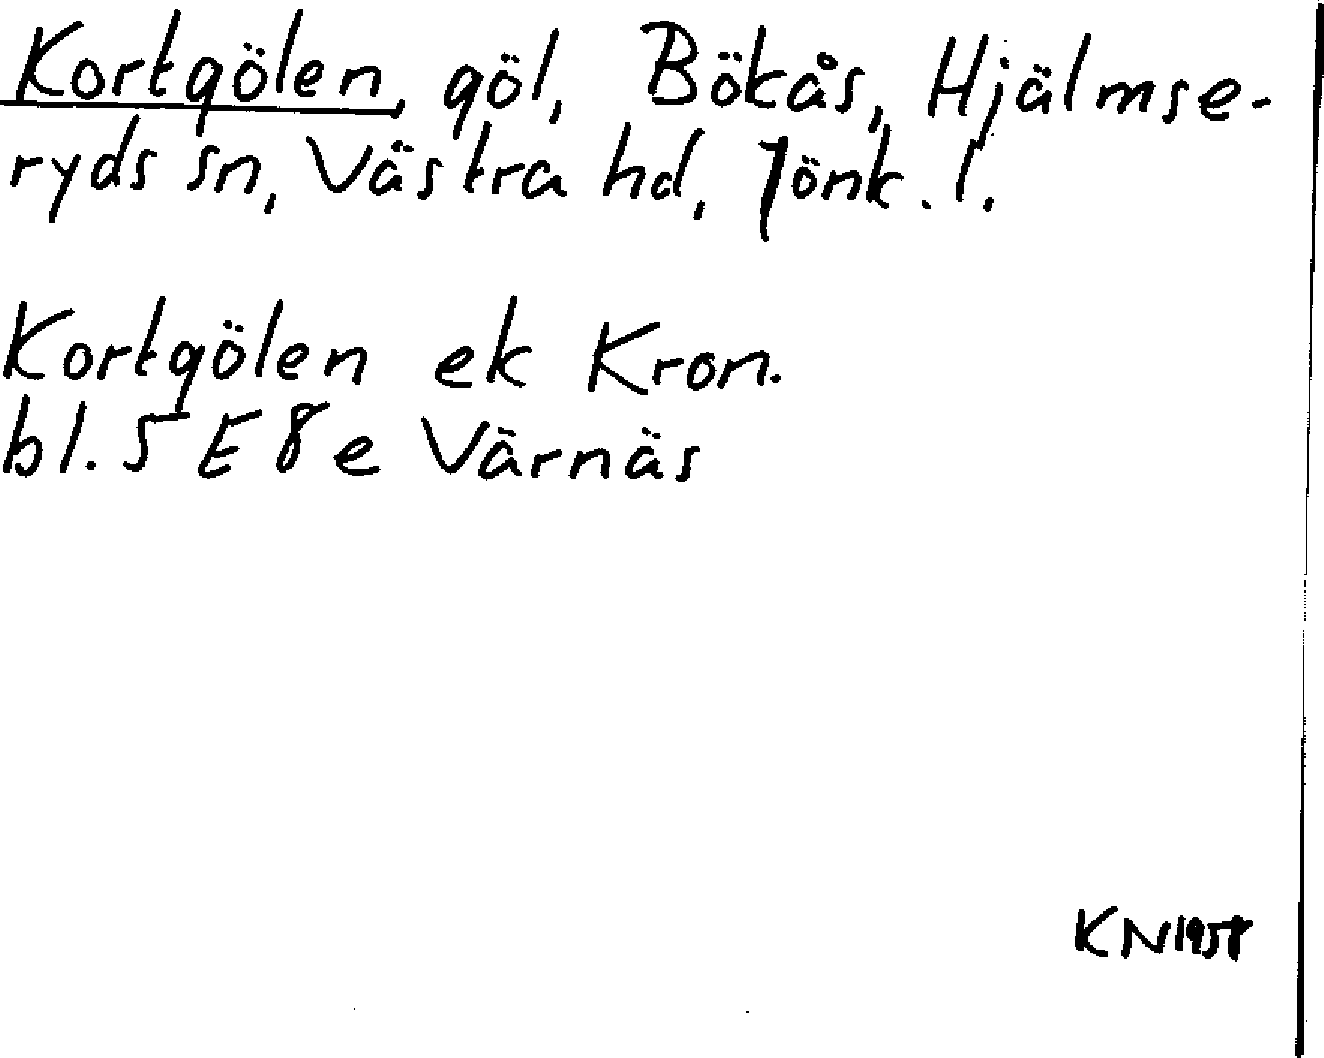 Kortgölen, göl, Bökås, Hjälmse-
ryds sn, Västra hd, Jönk. l.
Kortgölen ek Kron.
bl. 5 E 8 e Värnäs
KN